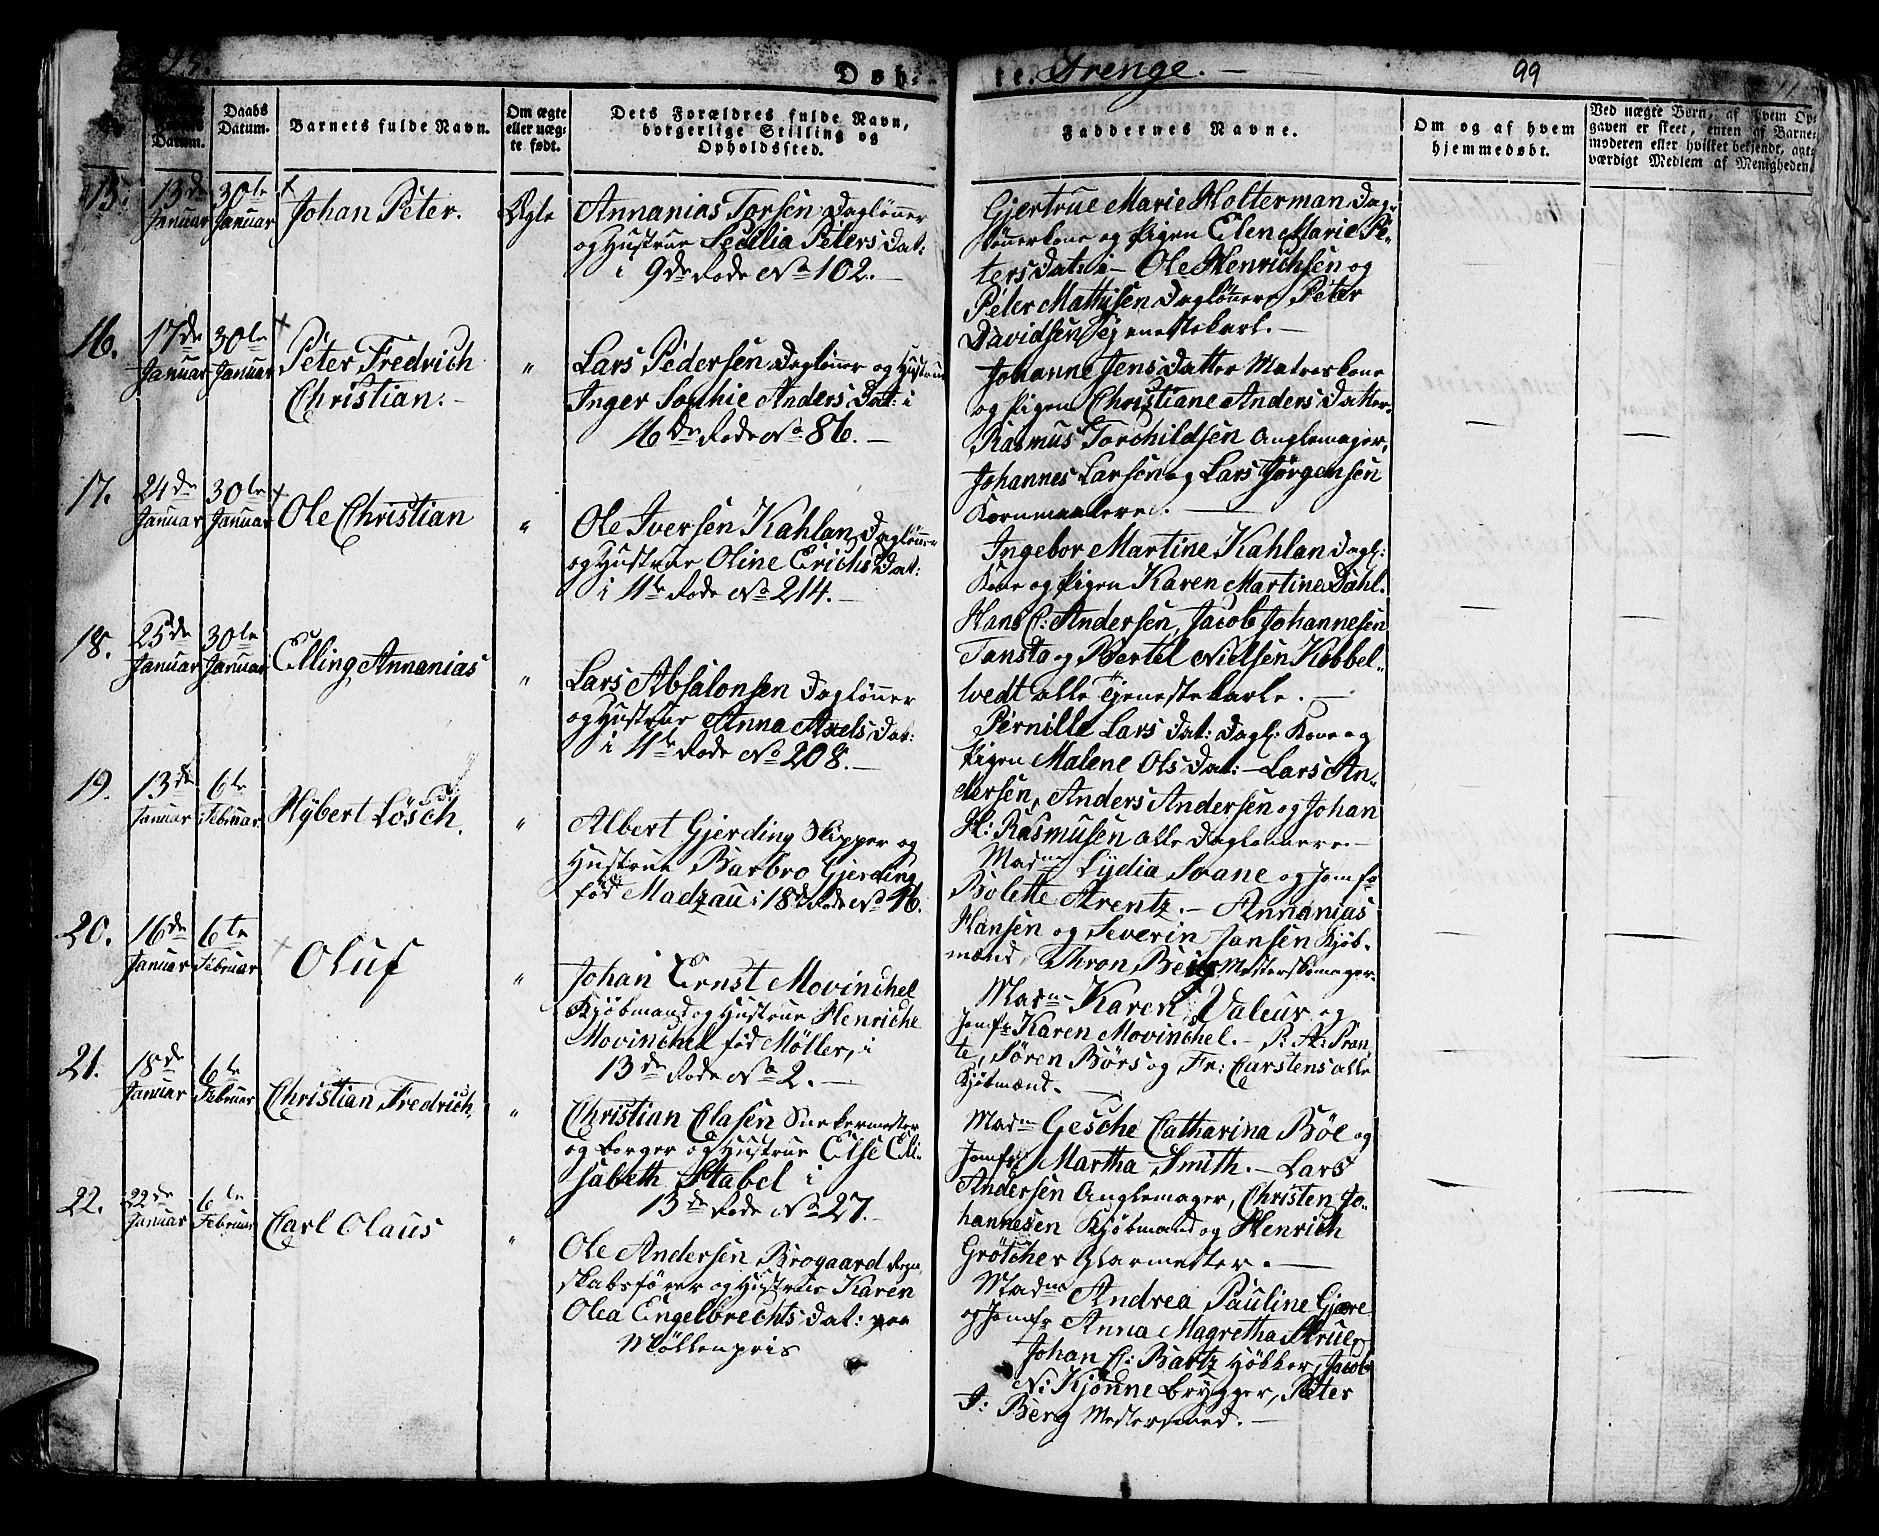 Døb-
te. Drenge. —
99
Daabs
Datum.
Barnets fulde Navn.
Om ægte
eller uæg-
te født.
Dets Forældres fulde Navn,
borgerlige Stilling og
Opholdssted.
Faddernes Navne.
Om og af hvem
hjemmedøbt.
Ved uægte Børn, af hvem Op-
gaven er skeet, enten af Barne-
moderen eller hvilket bekjendt, agt-
værdigt Medlem af Menigheden.
15.
13de
Januar
30te
Januar
Johan Peter.
Ægte
Annanias Torsen Daglönner
og Hustrue Secilia Peters Dat:
i 9de Rode No 102. —
Gjertrue Marie Holterman Dag-
lönnerkone og Pigen Elen Marie Pe-
ters Dat: i — Ole Henrichsen og
Peter Mathisen Daglönnere Peter
Davidsen Tjenestekarl. —
16.
17de
Januar
30te
Januar
Peter Fredrich
Christian. —
"
Lars Pedersen Daglönner og Hustrue
Inger Sophie Anders Dat: i
16de Rode No 86. —
Johanne Jens Datter Matroskone
og Pigen Christiane Anders Datter.
Rasmus Torchildsen Anglemager,
Johannes Larsen og Lars Jørgensen
Kornmaalere. —
17.
24de
Januar
30te
Januar
Ole Christian
"
Ole Iversen Kahlan Daglönner
og Hustrue Oline Erichs Dat:
i 11te Rode No 214. —
Ingebor Martine Kahlan Dagl:
Kone og Pigen Karen Martine Dahl.
Hans C: Andersen, Jacob Johannesen
Tansta og Bertel Nielsen Kobbel-
tvedt alle Tjenestekarle. —
18.
25de
Januar
30te
Januar
Elling Annanias
"
Lars Absalonsen Daglønner
og Hustrue Anna Axels Dat:
i 11te Rode No 208. —
Pernille Lars Dat: Dagl: Kone og
Pigen Malene Ols Dat: — Lars An-
dersen, Anders Andersen og Johan
H: Rasmusen alle Daglønnere. —
19.
13de
Januar
6te
Februar
Hybert Lösch.
"
Albert Gjerding Skipper og
Hustrue Barbro Gjerding
fød Madzau i 18de Rode No 16.
Madme Lydia Svane og Jomfr
Bolette Arentz. — Annanias
Hansen og Severin Jansen Kjöb-
mænd, Thron Berg Mesterskomager.
20.
16de
Januar
6te
Februar
Oluf
"
Johan Ernst Movinchel
Kjøbmand og Hustrue Henriche
Movinchel fød Møller, i
13de Rode No 2. —
Madme Karen Valeur og
Jomfr Karen Movinchel. — P. A: Pran-
te, Sören Börs og Fr: Carstens alle
Kjöbmænd. —
21.
18de
Januar
6te
Februar
Christian Fredrich.
"
Christian Clasen Snekermester
og borger og Hustrue Else Eli-
sabeth Stabel i
13de Rode No 27. —
Madme Gesche Catharina Böe og
Jomfr Martha Smith. — Lars
Andersen Anglemager, Christen Jo-
hannesen Kjöbmand og Henrich
Grötcher Glarmester. —
22.
22de
Januar
6te
Februar
Carl Olaus
"
Ole Andersen Brogaard Regn-
skabsförer og Hustrue Karen
Olea Engelbrechts Dat: paa
Møllenpris
Madme Andrea Pauline Gjære
og Jomfr Anna Magretha Krue,
Johan C: Bartz Høkker, Jacob
N: Kjönne brygger, Peter
J: Berg Mestersmed. —